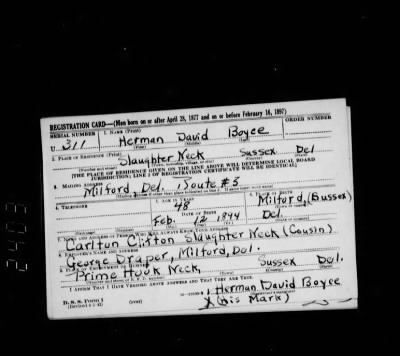 REGISTRATION CARD—(Men born on or after April 28, 1877 and on or before February 16, 1897)
SERIAL NUMBER 1. NAME (Print) ORDER NUMBER
U 311 Herman David Boyce
(First) (Middle) (Last)
2. PLACE OF RESIDENCE (Print)
Slaughter Neck Sussex Del
(Number and street) (Town, township, village, or city) (County) (State)
[THE PLACE OF RESIDENCE GIVEN ON THE LINE ABOVE WILL DETERMINE LOCAL BOARD
JURISDICTION; LINE 2 OF REGISTRATION CERTIFICATE WILL BE IDENTICAL]
3. MAILING ADDRESS
Milford, Del. Route #5
4. TELEPHONE 5. AGE IN YEARS 6. PLACE OF BIRTH
48 Milford, (Sussex)
DATE OF BIRTH
Feb. 12 1894 Del.
7. NAME AND ADDRESS OF PERSON WHO WILL ALWAYS KNOW YOUR ADDRESS
Carlton Clifton Slaughter Neck (Cousin)
8. EMPLOYER'S NAME AND ADDRESS
George Draper, Milford, Del.
9. PLACE OF EMPLOYMENT OR BUSINESS
Prime Hook Neck, Sussex Del.
I AFFIRM THAT I HAVE VERIFIED ABOVE ANSWERS AND THAT THEY ARE TRUE.
D. S. S. Form 1 Herman David Boyce
(Revised 4-1-42) X (his Mark)
2403